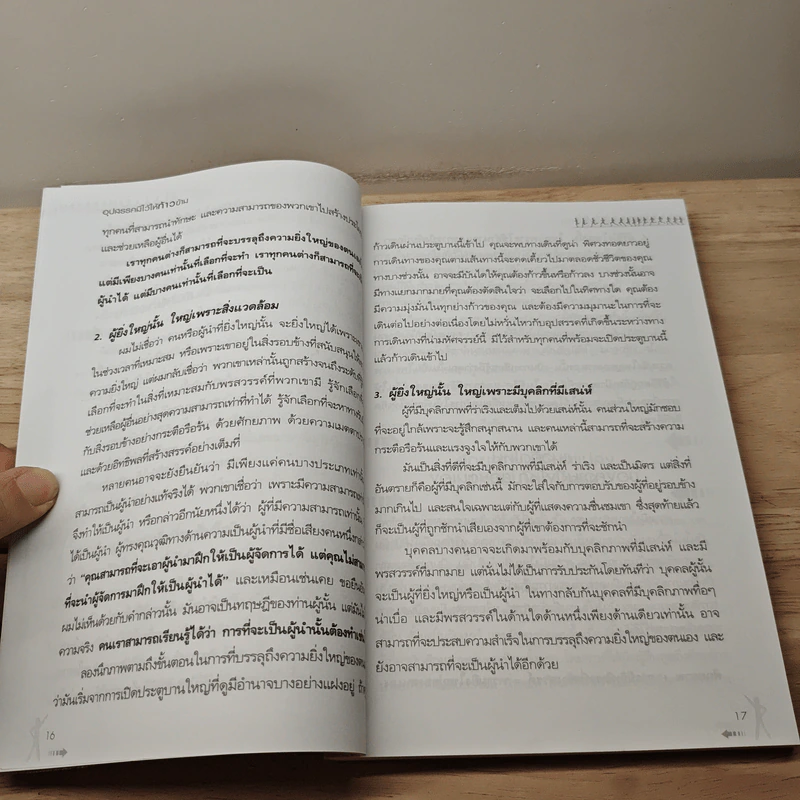 อุปสรรคมีไว้ให้ก้าวข้าม
ทุกคนที่สามารถนำทักษะ และความสามารถของพวกเขาไปสร้างประโย
และช่วยเหลือผู้อื่นได้
เราทุกคนต่างก็สามารถที่จะบรรลุถึงความยิ่งใหญ่ของตนเอง
แต่มีเพียงบางคนเท่านั้นที่เลือกที่จะทำ เราทุกคนต่างก็สามารถที่จะ
ผู้นำได้ แต่มีบางคนเท่านั้นที่เลือกที่จะเป็น
2. ผู้ยิ่งใหญ่นั้น ใหญ่เพราะสิ่งแวดล้อม
ผมไม่เชื่อว่า คนหรือผู้นำที่ยิ่งใหญ่นั้น จะยิ่งใหญ่ได้เพราะเขา
ในช่วงเวลาที่เหมาะสม หรือเพราะเขาอยู่ในสิ่งรอบข้างที่สนับสนุนให้
ความยิ่งใหญ่ แต่ผมกลับเชื่อว่า พวกเขาเหล่านั้นถูกสร้างจนถึงระดับ
เลือกที่จะทำในสิ่งที่เหมาะสมกับพรสวรรค์ที่พวกเขามี รู้จักเลือก
ช่วยเหลือผู้อื่นอย่างสุดความสามารถเท่าที่ทำได้ รู้จักเลือกที่จะหาทาง
กับสิ่งรอบข้างอย่างกระตือรือร้น ด้วยศักยภาพ ด้วยความเมตตา
และด้วยอิทธิพลที่สร้างสรรค์อย่างเต็มที่
หลายคนอาจจะยังยืนยันว่า มีเพียงแค่คนบางประเภทเท่านั้น
สามารถเป็นผู้นำอย่างแท้จริงได้ พวกเขาเชื่อว่า เพราะมีความสามารถ
จึงทำให้เป็นผู้นำ หรือกล่าวอีกนัยหนึ่งได้ว่า ผู้ที่มีความสามารถเท่านั้น
ได้เป็นผู้นำ ผู้ทรงคุณวุฒิทางด้านความเป็นผู้นำที่มีชื่อเสียงคนหนึ่งกล่
ว่า “คุณสามารถที่จะเอาผู้นำมาฝึกให้เป็นผู้จัดการได้ แต่คุณไม่สามา
ที่จะนำผู้จัดการมาฝึกให้เป็นผู้นำได้” และเหมือนเช่นเคย ขอยืน
ผมไม่เห็นด้วยกับคำกล่าวนั้น มันอาจเป็นทฤษฎีของท่านผู้นั้น แต่มัน
ความจริง คนเราสามารถเรียนรู้ได้ว่า การที่จะเป็นผู้นำนั้นต้องทำ
ลองนึกภาพตามถึงขั้นตอนในการที่บรรลุถึงความยิ่งใหญ่ของ
ว่ามันเริ่มจากการเปิดประตูบานใหญ่ที่ดูมีอำนาจบางอย่างแฝงอยู่ ถ้า
16
ก้าวเดินผ่านประตูบานนี้เข้าไป คุณจะพบทางเดินที่ดูน่า พิศวงทอดยาวอยู่
การเดินทางของคุณตามเส้นทางนี้จะคดเคี้ยวไปมาตลอดชั่วชีวิตของคุณ
ทางบางช่วงนั้น อาจจะมีบันไดให้คุณต้องก้าวขึ้นหรือก้าวลง บางช่วงนั้นอาจ
มีทางแยกมากมายที่คุณต้องตัดสินใจว่า จะเลือกไปในทิศทางใด คุณต้อง
มีความมุ่งมั่นในทุกย่างก้าวของคุณ และต้องมีความมุมานะในการที่จะ
เดินต่อไปอย่างต่อเนื่องโดยไม่หวั่นไหวกับอุปสรรคที่เกิดขึ้นระหว่างทาง
การเดินทางที่น่ามหัศจรรย์นี้ มีไว้สำหรับทุกคนที่พร้อมจะเปิดประตูบานนี้
แล้วก้าวเดินเข้าไป
3. ผู้ยิ่งใหญ่นั้น ใหญ่เพราะมีบุคลิกที่มีเสน่ห์
ผู้ที่มีบุคลิกภาพที่ร่าเริงและเต็มไปด้วยเสน่ห์นั้น คนส่วนใหญ่มักชอบ
ที่จะอยู่ใกล้เพราะจะรู้สึกสนุกสนาน และคนเหล่านี้สามารถที่จะสร้างความ
กระตือรือร้นและแรงจูงใจให้กับพวกเขาได้
มันเป็นสิ่งที่ดีที่จะมีบุคลิกภาพที่มีเสน่ห์ ร่าเริง และเป็นมิตร แต่สิ่งที่
อันตรายก็คือผู้ที่มีบุคลิกเช่นนี้ มักจะใส่ใจกับการตอบรับของผู้ที่อยู่รอบข้าง
มากเกินไป และสนใจเฉพาะแต่กับผู้ที่แสดงความชื่นชมเขา ซึ่งสุดท้ายแล้ว
ก็จะเป็นผู้ที่ถูกชักนำเสียเองจากผู้ที่เขาต้องการที่จะชักนำ
บุคคลบางคนอาจจะเกิดมาพร้อมกับบุคลิกภาพที่มีเสน่ห์ และมี
พรสวรรค์ที่มากมาย แต่นั่นไม่ได้เป็นการรับประกันโดยทันทีว่า บุคคลผู้นั้น
จะเป็นผู้ที่ยิ่งใหญ่หรือเป็นผู้นำ ในทางกลับกันบุคคลที่มีบุคลิกภาพที่อๆ
น่าเบื่อ และมีพรสวรรค์ในด้านใดด้านหนึ่งเพียงด้านเดียวเท่านั้น อาจ
สามารถที่จะประสบความสำเร็จในการบรรลุถึงความยิ่งใหญ่ของตนเอง และ
ยังอาจสามารถที่จะเป็นผู้นำได้อีกด้วย
17